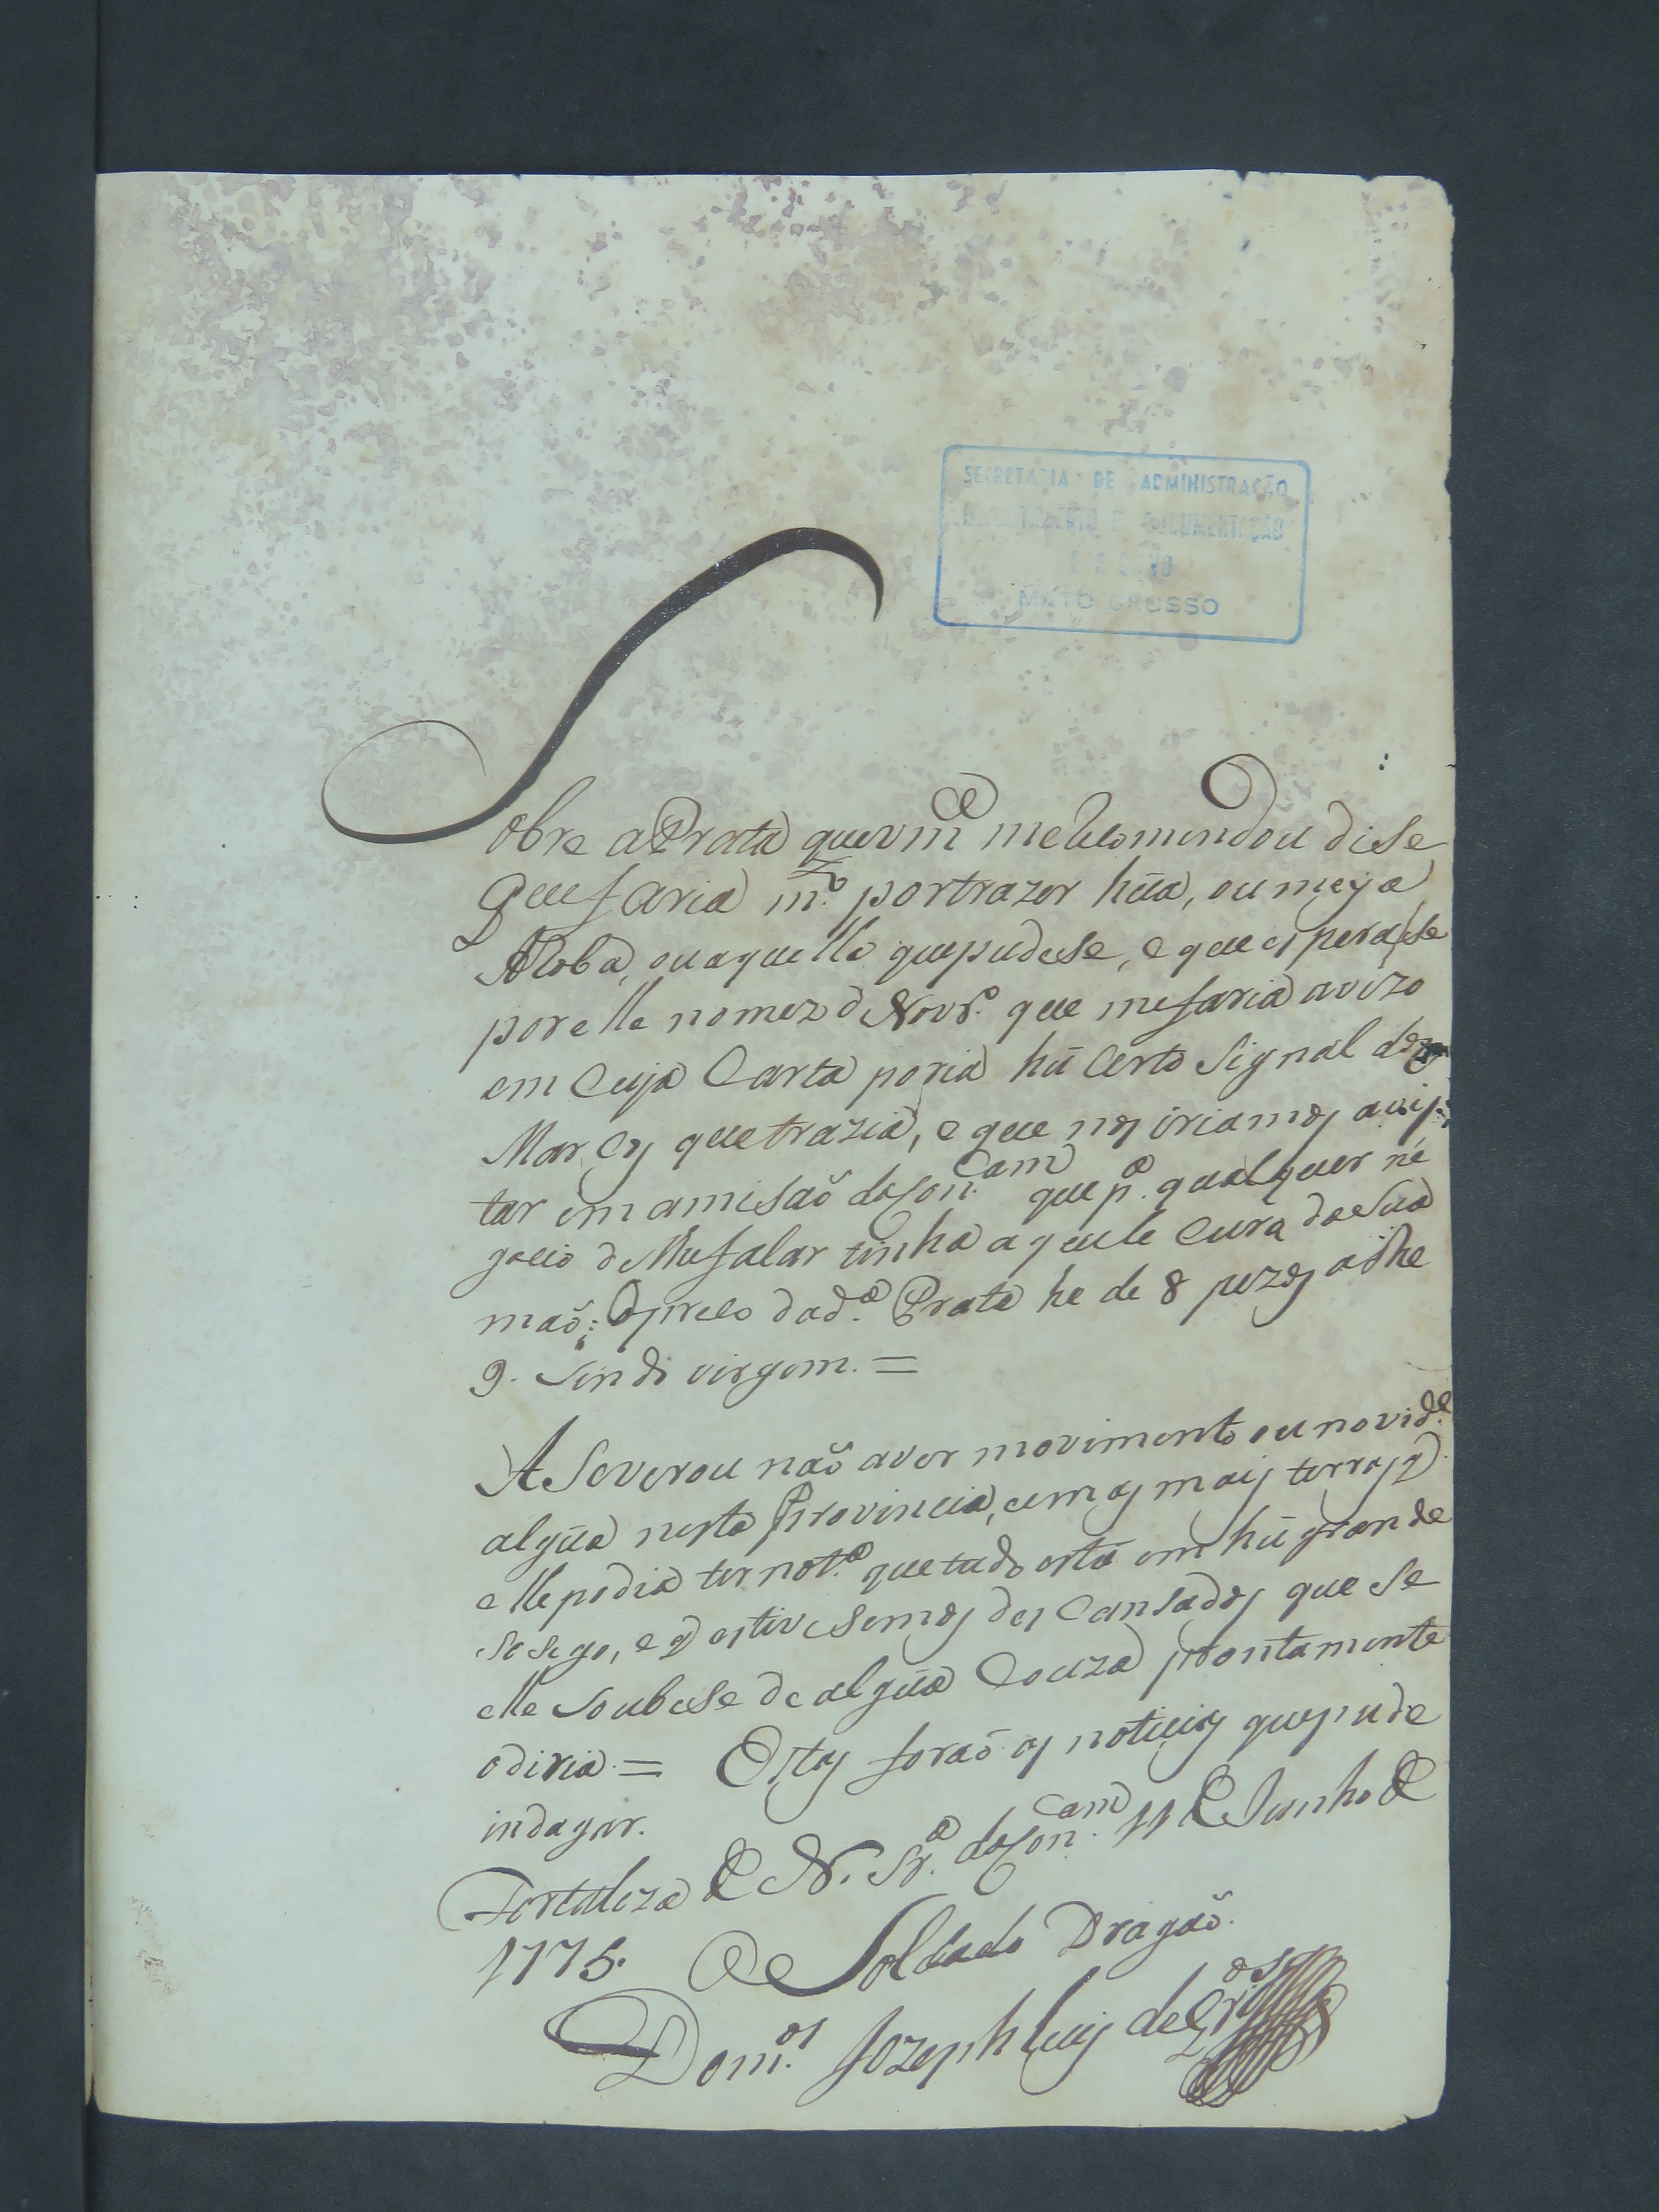 SECRETARIA DE ADMINISTRAÇÃO
DEPARTAMENTO DE DOCUMENTAÇÃO
E ARQUIVO
MATO GROSSO
Sobre a Prata que vm.ce me recomendou dise
que faria m.to por trazer hũa, ou meya
Aroba, ou aquella que pudese, e que esperase
por elle no mez d Novr.o que me faria avizo
em cuja Carta poria hũ certo signal dos
Marcos que trazia, e que nos iriamos avis-
tar em a misaõ da Con.cam que p.a qualquer ne
gocio d Mefalar tinha aquele Cura da sua
maõ; O preco da d.a Prata he de 8 pezos athe
9. sendo virgem. =
A Severou naõ aver movimento ou novid.e
algũa nesta Provincia, em as mais terras q
elle podia ter not.a que tudo está em hũ grande
sosego, e q estivesemos descansados que se
elle soubese de algũa Couza prontamente
o diria = Estas foraõ as noticias que pude
indagar.
Fortaleza de N. Sr.a da Con.cam 11 de Junho de
1775. O Soldado Dragaõ.
Dom.os Jozeph Luis de